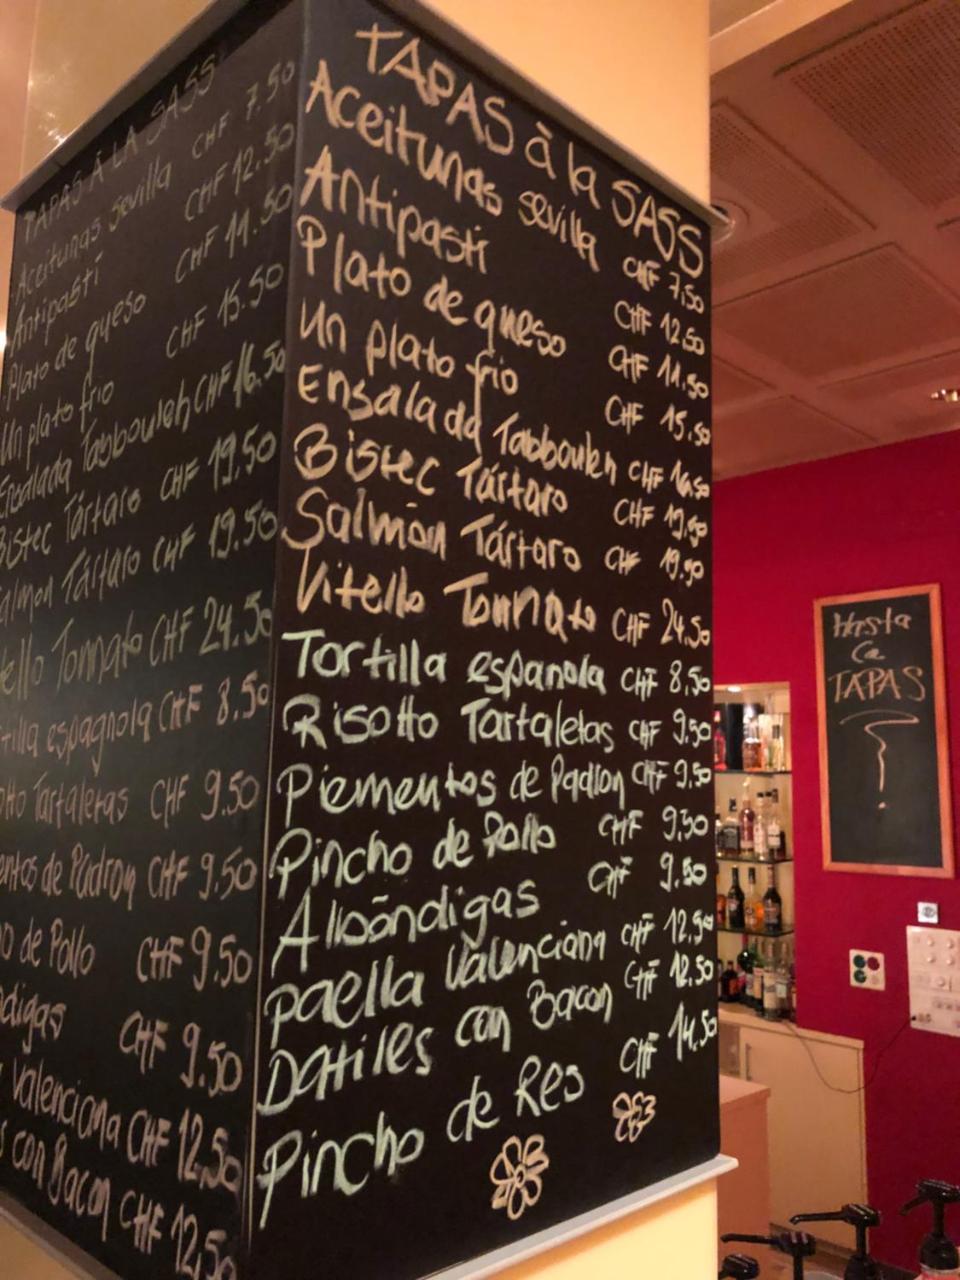 TAPAS À LA SASS
Aceitunas Sevilla CHF 7.50
Antipasti CHF 12.50
Plato de queso CHF 11.50
Un plato frio CHF 15.50
Ensalada Tabbouleh CHF 16.50
Bistec Tártaro CHF 19.50
Salmon Tártaro CHF 19.50
tello Tonnato CHF 24.50
tilla espagnola CHF 8.50
otto Tartaletas CHF 9.50
entos de Padron CHF 9.50
o de Pollo CHF 9.50
ndigas CHF 9.50
Valenciana CHF 12.50
s con Bacon CHF 12.50
TAPAS à la SASS
Aceitunas sevilla CHF 7.50
Antipasti CHF 12.50
Plato de queso CHF 11.50
Un plato frio CHF 15.50
Ensalada Tabbouleh CHF 16.50
Bistec Tártaro CHF 19.50
Salmón Tártaro CHF 19.50
Vitello Tonnato CHF 24.50
Tortilla espanola CHF 8.50
Risotto Tartaletas CHF 9.50
Piementos de Padron CHF 9.50
Pincho de Pollo CHF 9.50
Albóndigas CHF 9.50
paella Valenciana CHF 12.50
Datiles con Bacon CHF 12.50
Pincho de Res CHF 14.50
Hasta
La
TAPAS